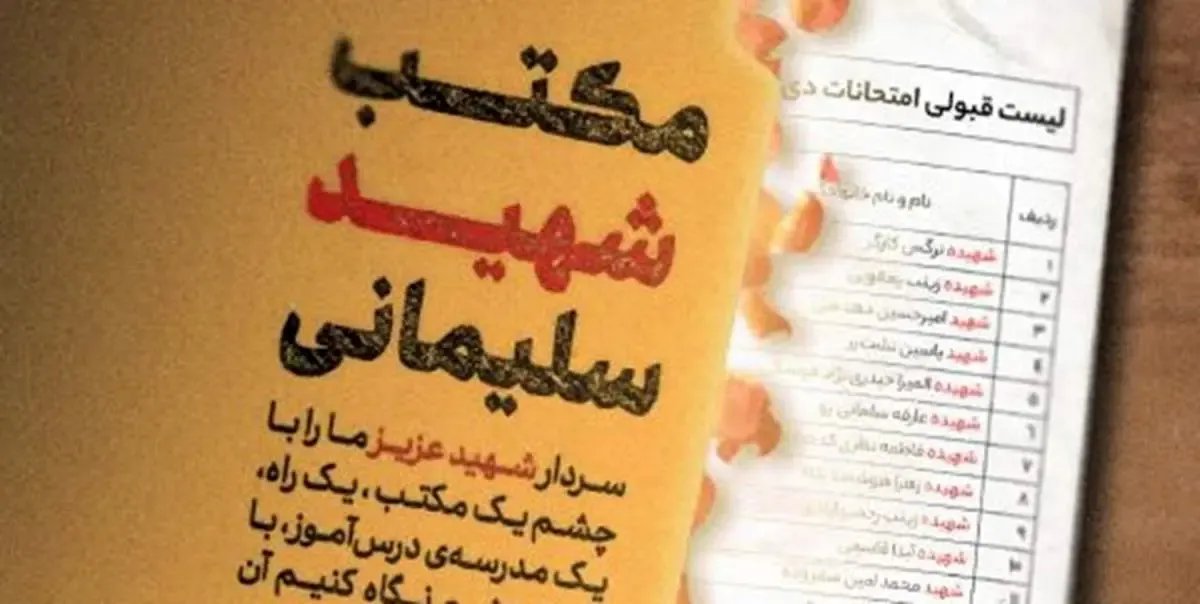 مکتب
شهید
سلیمانی
سردار شهید عزیز ما را با
چشم یک مکتب، یک راه،
یک مدرسه‌ی درس‌آموز، با
نگاه کنیم آن
لیست قبولی امتحانات دی
ردیف نام و نام خانوادگی
۱ شهیده نرگس کارگر
۲ شهیده زینب یعقوبی
۳ شهید امیرحسین
۴ شهید یاسین
۵ شهیده المیرا حیدری‌نژاد
۶ شهیده عارفه سلمانی پو
۷ شهیده فاطمه نظری
۸ شهیده زهرا
۹ شهیده زینب
۱۰ شهیده آیدا قاسمی
شهید محمد امین